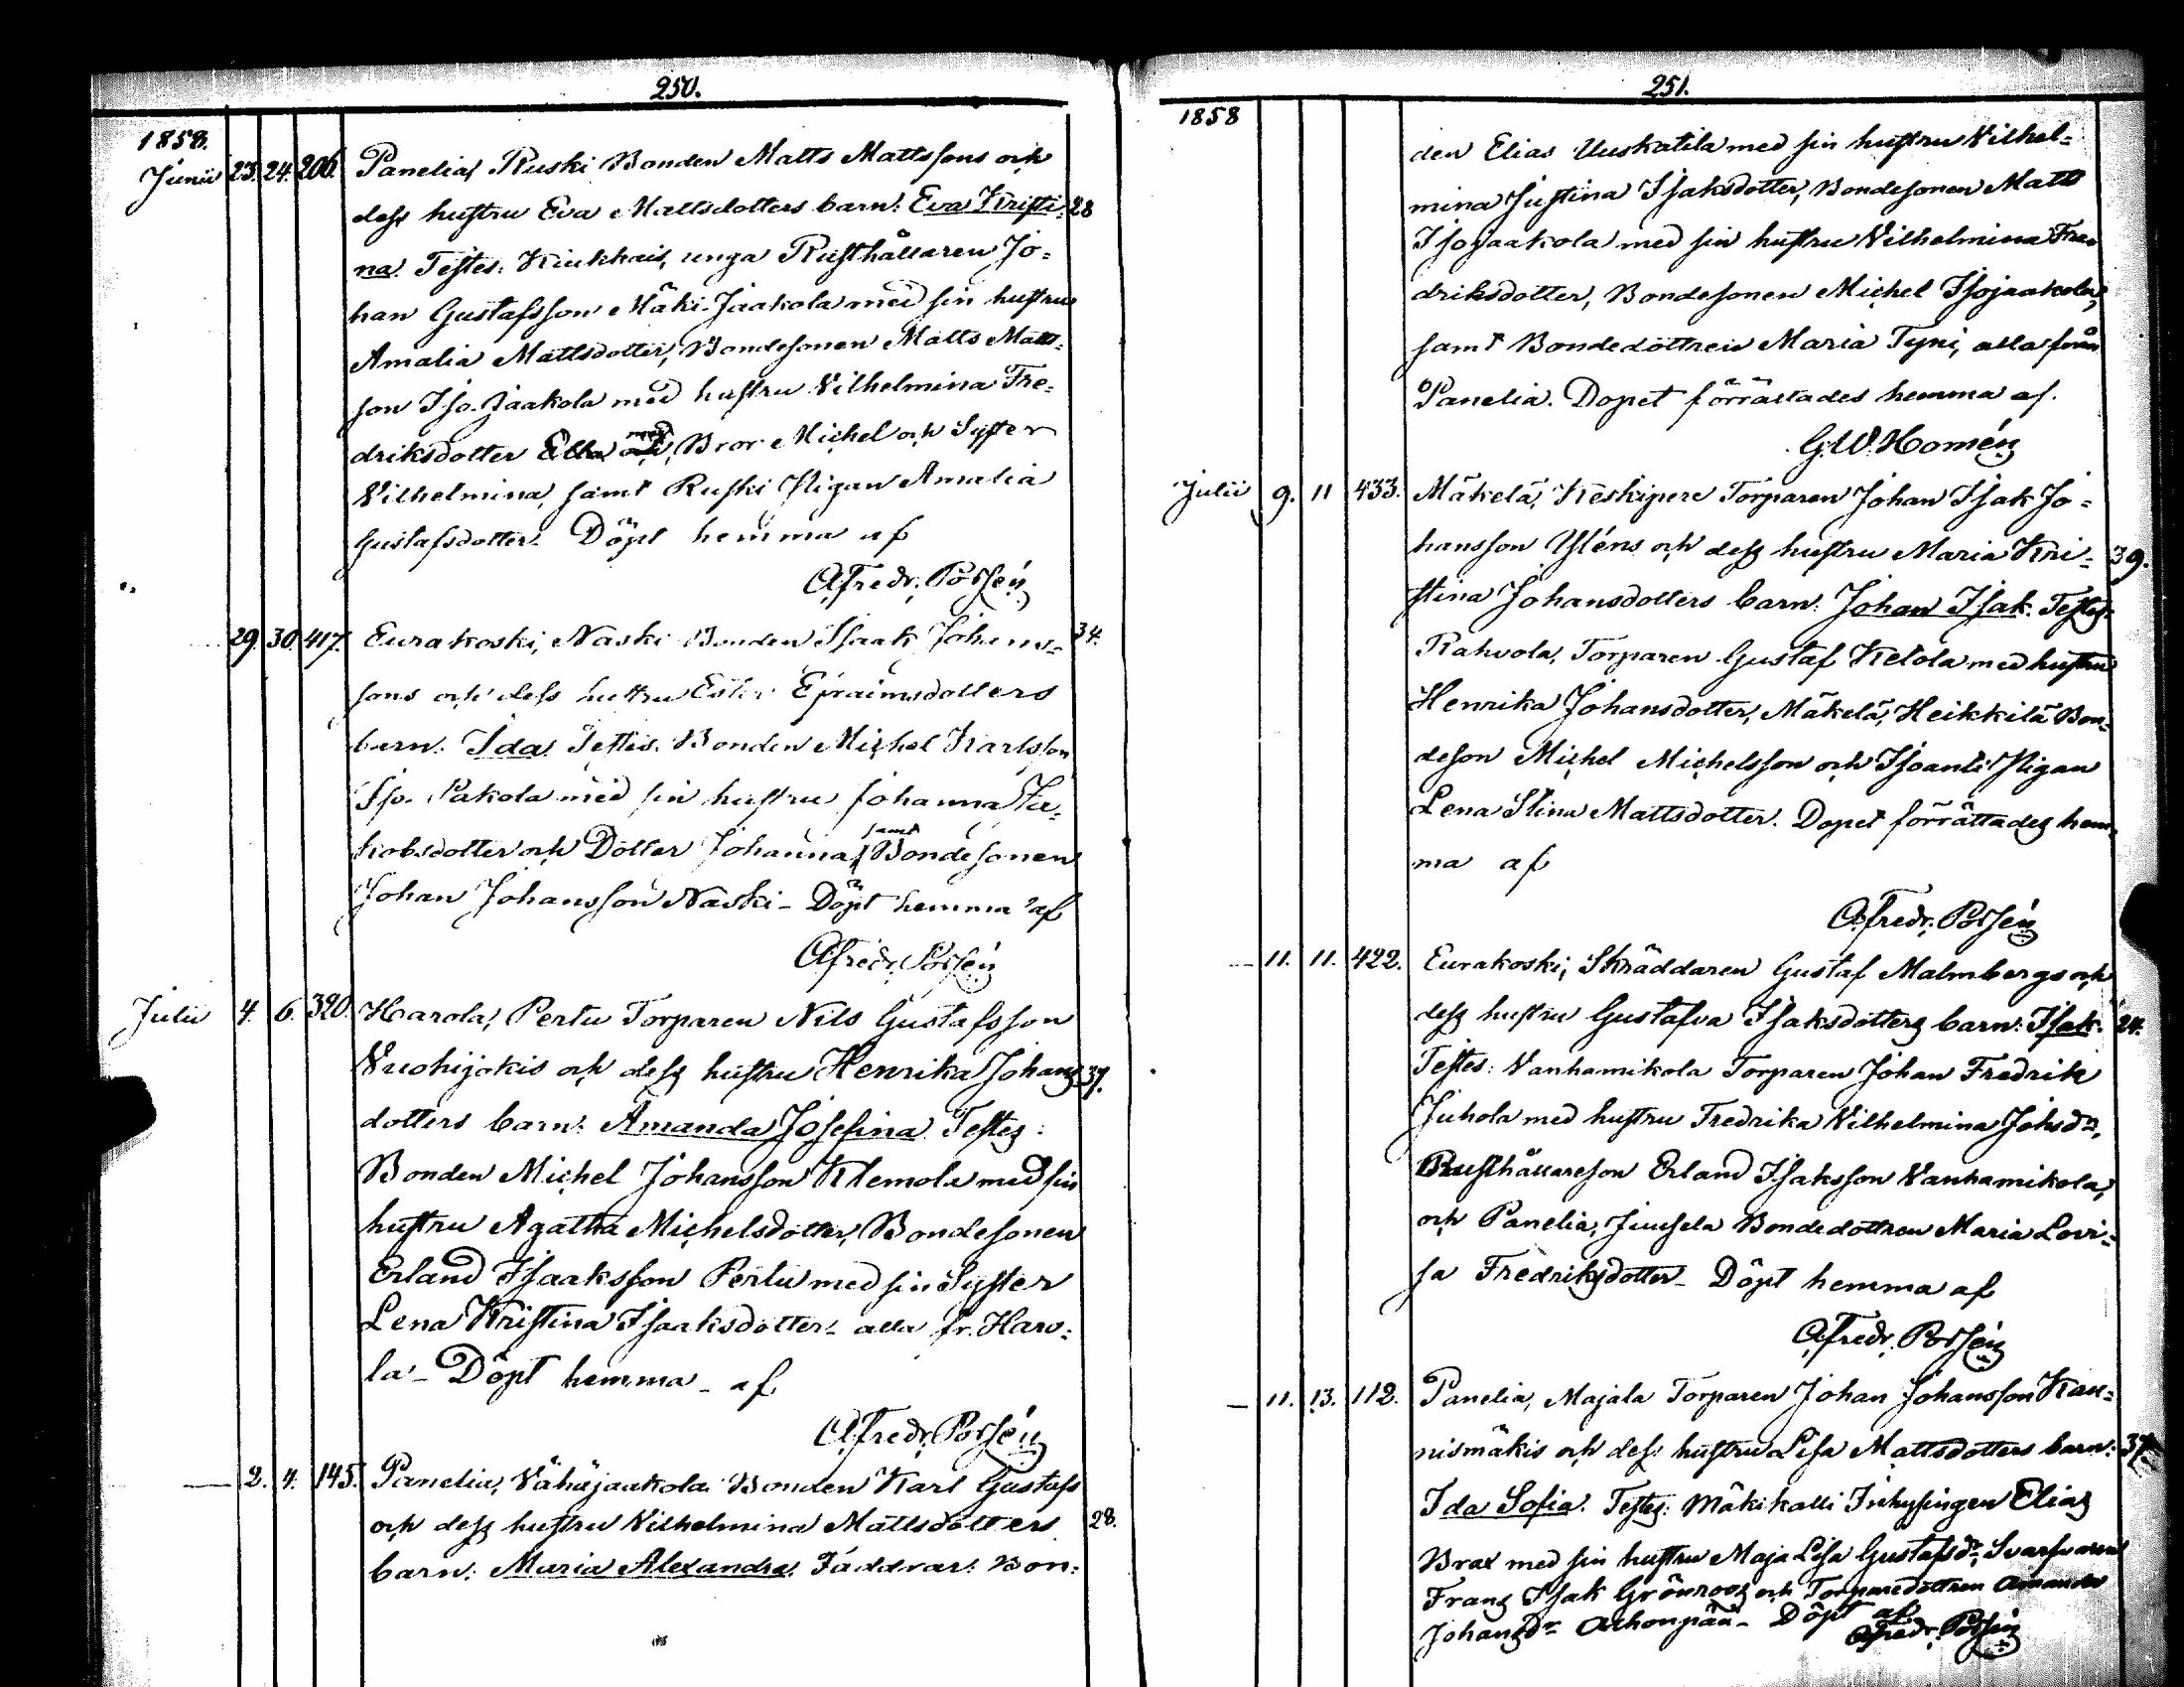 250.
1858.
Junii 23. 24. 206. Panelia, Ruski Bonden Matts Mattssons och
dess hustru Eva Mattsdotters barn: Eva Kristi- 28
na. Testes: Kiukkais, unga Rusthållaren Jo-
han Gustafsson Mäki-Jaakola med sin hustru
Amalia Mattsdotter, Bondesonen Matts Matts-
son Iso-Jaakola med hustru Vilhelmina Fre-
driksdotter med Bror Michel och Syster
Vilhelmina, samt Ruski Pigan Amalia
Gustafsdotter. Döpt hemma af
Afredr. Porsén
29. 30. 417. Eurakoski, Naski Bonden Isaak Johans- 34.
sons och dess hustru Ester Efraimsdotters
barn: Ida. Testes: Bonden Michel Karlsson
Iso-Pakola med sin hustru Johanna Ja-
kobsdotter och Dotter Johanna, samt Bondesonen
Johan Johansson Naski - Döpt hemma af
Afredr. Porsén
Julii 4. 6. 390. Harola, Pertu Torparen Nils Gustafsson
Vuohijokis och dess hustru Henrika Johans 37.
dotters barn: Amanda Josefina. Testes:
Bonden Michel Johansson Klemola med sin
hustru Agatha Michelsdotter, Bondesonen
Erland Isaaksson Pertu med sin Syster
Lena Kristina Isaaksdotter - alla fr. Haro-
la - Döpt hemma - af
Afredr. Porsén
— 2. 4. 145. Panelia, Vähäjaakola Bonden Karl Gustafs
och dess hustru Vilhelmina Mattsdotters 28.
barn: Maria Alexandra. Faddrar: Bon-
251.
1858
den Elias Uuskatila med sin hustru Vilhel-
mina Justina Isaksdotter, Bondesonen Matts
Isojaakola med sin hustru Vilhelmina Fre-
driksdotter, Bondesonen Michel Isojaakola,
samt Bondedottren Maria Tyni, alla från
Panelia. Dopet förrättades hemma af.
G.W. Homén
Julii 9. 11 433. Mäkelä, Keskipere Torparen Johan Isak Jo-
hansson Yléns och dess hustru Maria Kri- 39.
stina Johansdotters barn: Johan Isak. Testes:
Rahvola, Torparen Gustaf Ketola med hustru
Henrika Johansdotter, Mäkelä, Heikkilä Bon-
deson Michel Michelsson och Isoantti Pigan
Lena Stina Mattsdotter. Dopet förrättades hem-
ma af
Afredr. Porsén
— 11. 11. 422. Eurakoski, Skräddaren Gustaf Malmbergs och
dess hustru Gustafva Isaksdotters barn: Isak. 24.
Testes: Vanhamikola Torparen Johan Fredrik
Juhola med hustru Fredrika Vilhelmina Johsdr,
Rusthållareson Erland Isaksson Vanhamikola,
och Panelia, Juusela Bondedottren Maria Lovi-
sa Fredriksdotter - Döpt hemma af
Afredr. Porsén
— 11. 13. 112. Panelia, Majala Torparen Johan Johansson Kau-
nismäkis och dess hustru Lisa Mattsdotters barn: 37.
Ida Sofia. Testes: Mäkikalli Inhysingen Elias
Brax med sin hustru Maja Lisa Gustafsdr, Svarfvaren
Frans Isak Grönroos och Torparedottren Amanda
Johansdr Ahonpää - Döpt af.
Afredr. Porsén